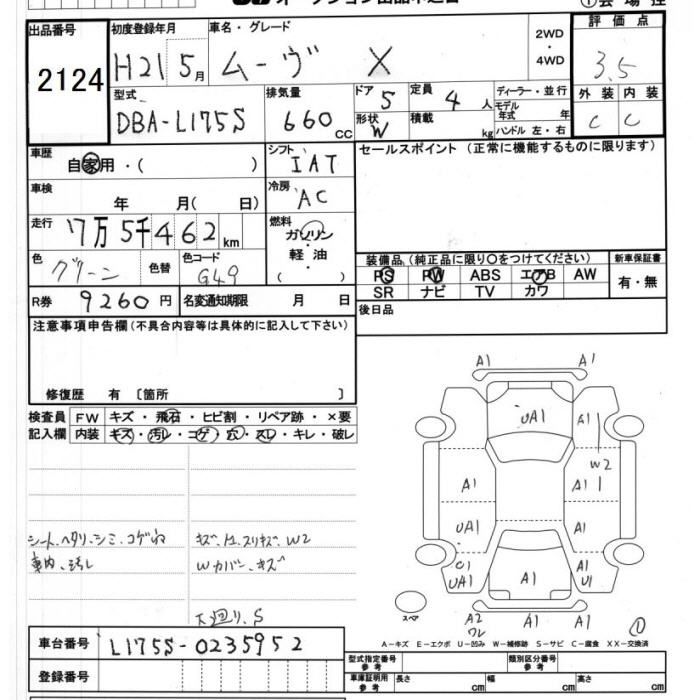 出品番号
2124
初度登録年月
H21 5月
車名・グレード
ムーヴ X
2WD
・
4WD
評価点
3.5
型式
DBA-L175S
排気量
660cc
ドア 5
定員 4人
ディーラー・並行
形状 W
積載 kg
モデル年式 年
ハンドル 左・右
外装 内装
C C
車歴
自家用・( )
シフト
IAT
セールスポイント (正常に機能するものに限ります)
車検
年 月( 日)
冷房
AC
走行
7万5千462km
燃料
ガソリン
・
軽油
・
( )
色
グリーン
色替
色コード
G49
装備品 (純正品に限り〇をつけてください)
新車保証書
PS PW ABS エアB AW
SR ナビ TV カワ
有・無
R券 9260円
名変通知期限 月 日
後日品
注意事項申告欄 (不具合内容等は具体的に記入して下さい)
修復歴 有 〔箇所 〕
検査員
記入欄
FW キズ・飛石・ヒビ割・リペア跡・×要
内装 キズ・汚レ・コゲ・穴・スレ・キレ・破レ
シート、ヘタリ、シミ、コゲ
車内、汚レ
W2
Wカバー、キズ
下廻り、S
A1 A1
UA1
A1
W2
A1 A1
UA1 A1
UA1 A1 A1
U1
A2 A1 A1
スペア
A-キズ E-エクボ U-凹み W-補修跡 S-サビ C-腐食 XX-交換済
車台番号
L175S-0235952
登録番号
型式指定番号
参考
類別区分番号
参考
車庫証明用
参考
長さ cm
幅 cm
高さ cm